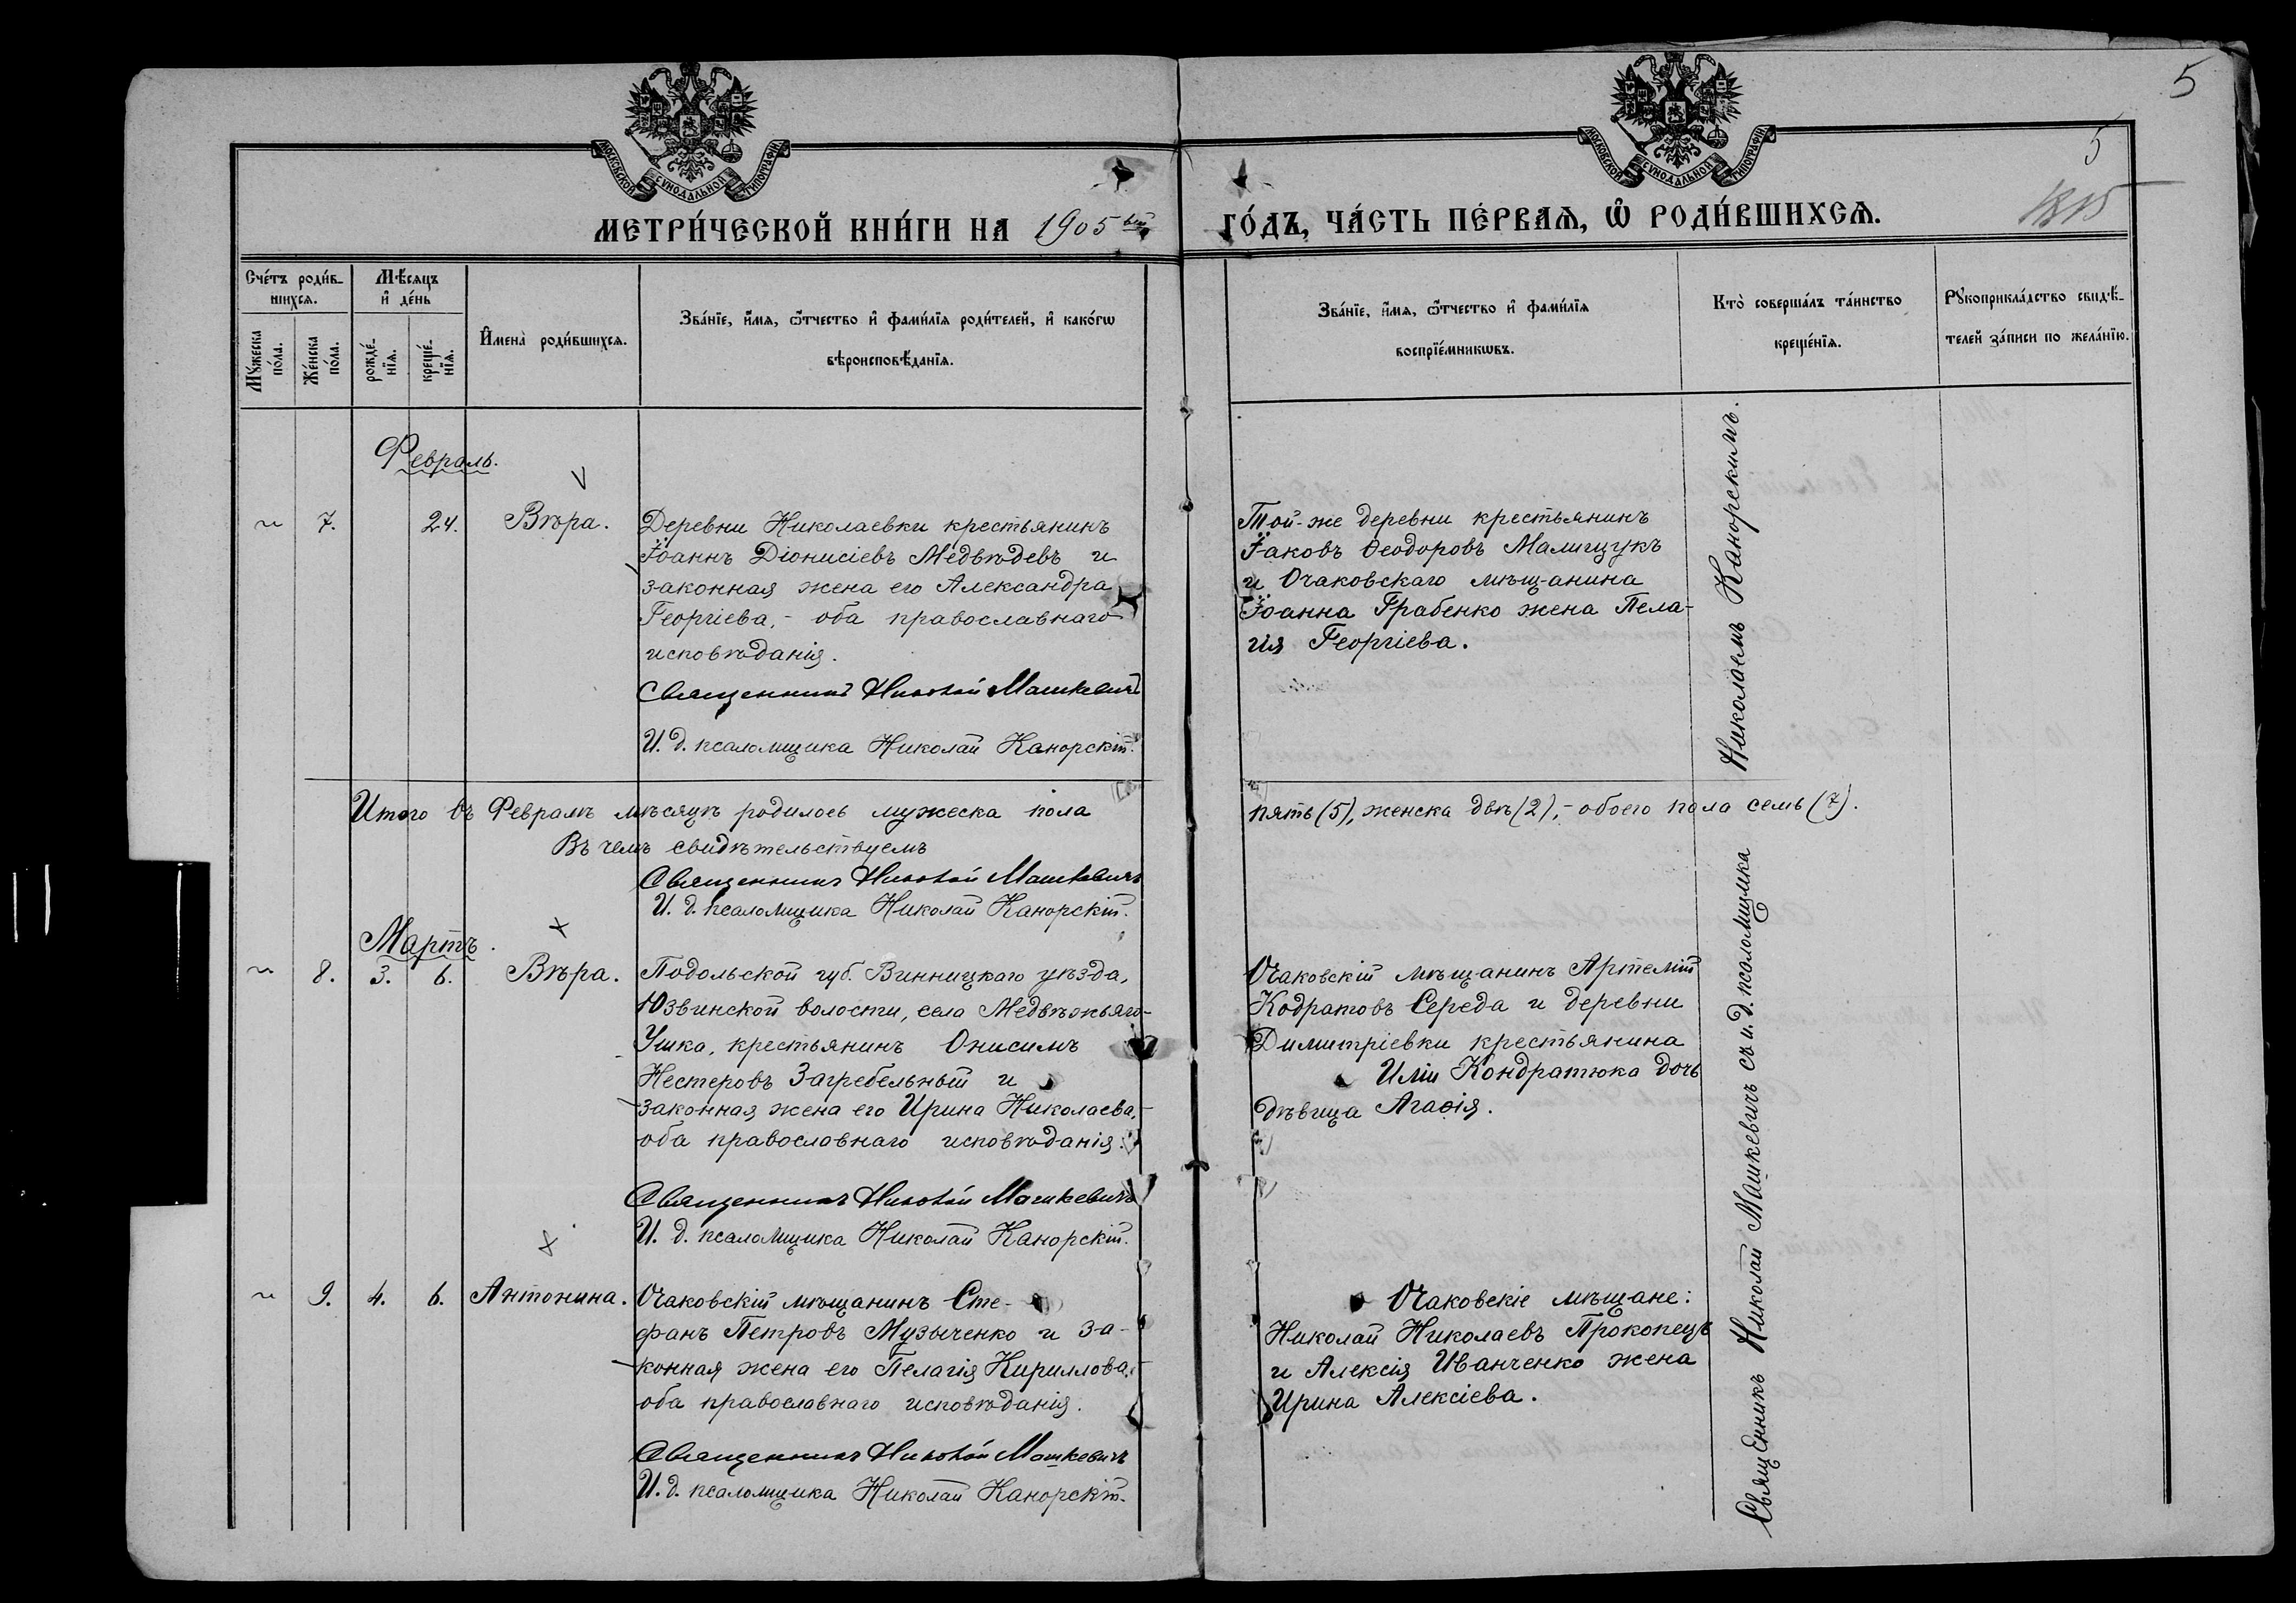 5
5
МОСКОВСКОЙ СѴНОДАЛЬНОЙ ТИПОГРАФІИ
МОСКОВСКОЙ СѴНОДАЛЬНОЙ ТИПОГРАФІИ
МЕТРИ́ЧЕСКОЙ КНИ́ГИ НА 1905 ый
ГО́ДЪ, ЧА́СТЬ ПЕ́РВАѦ, Ѿ РОДИ́ВШИХСѦ.
Сче́тъ роди́в-
шихсѧ.
Мѣ́сяцъ
и҆ де́нь
Мꙋ́жеска
по́ла.
Же́нска
по́ла.
рожде́-
нїѧ.
креще́-
нїѧ.
И҆мена̀ роди́вшихсѧ.
Зва́нїе, и҆́мѧ, ѻ҆́тчество и҆ фами́лїѧ роди́телей, и҆ како́гѡ
вѣроисповѣ́данїѧ.
Зва́нїе, и҆́мѧ, ѻ҆́тчество и҆ фами́лїѧ
воспрїе́мникѡвъ.
Кто̀ соверша́лъ та́инство
креще́нїѧ.
Рꙋкоприкла́дство свидѣ́-
телей за́писи по жела́нїю.
Февраль.
7. 24. Вѣра.
Деревни Николаевки крестьянинъ
Іоаннъ Діонисіевъ Медвѣдевъ и
законная жена его Александра
Георгіева, - оба православнаго
исповѣданія.
Священникъ Николай Машкевичъ
И. д. псаломщика Николай Канорскій.
Той-же деревни крестьянинъ
Іаковъ Ѳеодоровъ Малищукъ
и Очаковскаго мѣщанина
Іоанна Грабенко жена Пела-
гія Георгіева.
Итого въ Февралѣ мѣсяцѣ родилось мужеска пола
пять (5), женска двѣ (2), - обоего пола семь (7).
Въ чемъ свидѣтельствуемъ
Священникъ Николай Машкевичъ
И. д. псаломщика Николай Канорскій.
Мартъ.
8. 3. 6. Вѣра.
Подольской губ. Винницкаго уѣзда,
Юзвинской волости, села Медвѣжьяго-
Ушка, крестьянинъ Онисимъ
Нестеровъ Загребельный и
законная жена его Ирина Николаева, -
оба православнаго исповѣданія.
Священникъ Николай Машкевичъ
И. д. псаломщика Николай Канорскій.
Очаковскій мѣщанинъ Артемій
Кодратовъ Середа и деревни
Димитріевки крестьянина
Иліи Кондратюка дочь
дѣвица Агаѳія.
9. 4. 6. Антонина.
Очаковскій мѣщанинъ Сте-
фанъ Петровъ Музыченко и за-
конная жена его Пелагія Кириллова, -
оба православнаго исповѣданія.
Священникъ Николай Машкевичъ
И. д. псаломщика Николай Канорскій.
Очаковскіе мѣщане:
Николай Николаевъ Прокопецъ
и Алексія Иванченко жена
Ирина Алексіева.
Священникъ Николай Машкевичъ съ и. д. псаломщика Николаемъ Канорскимъ.